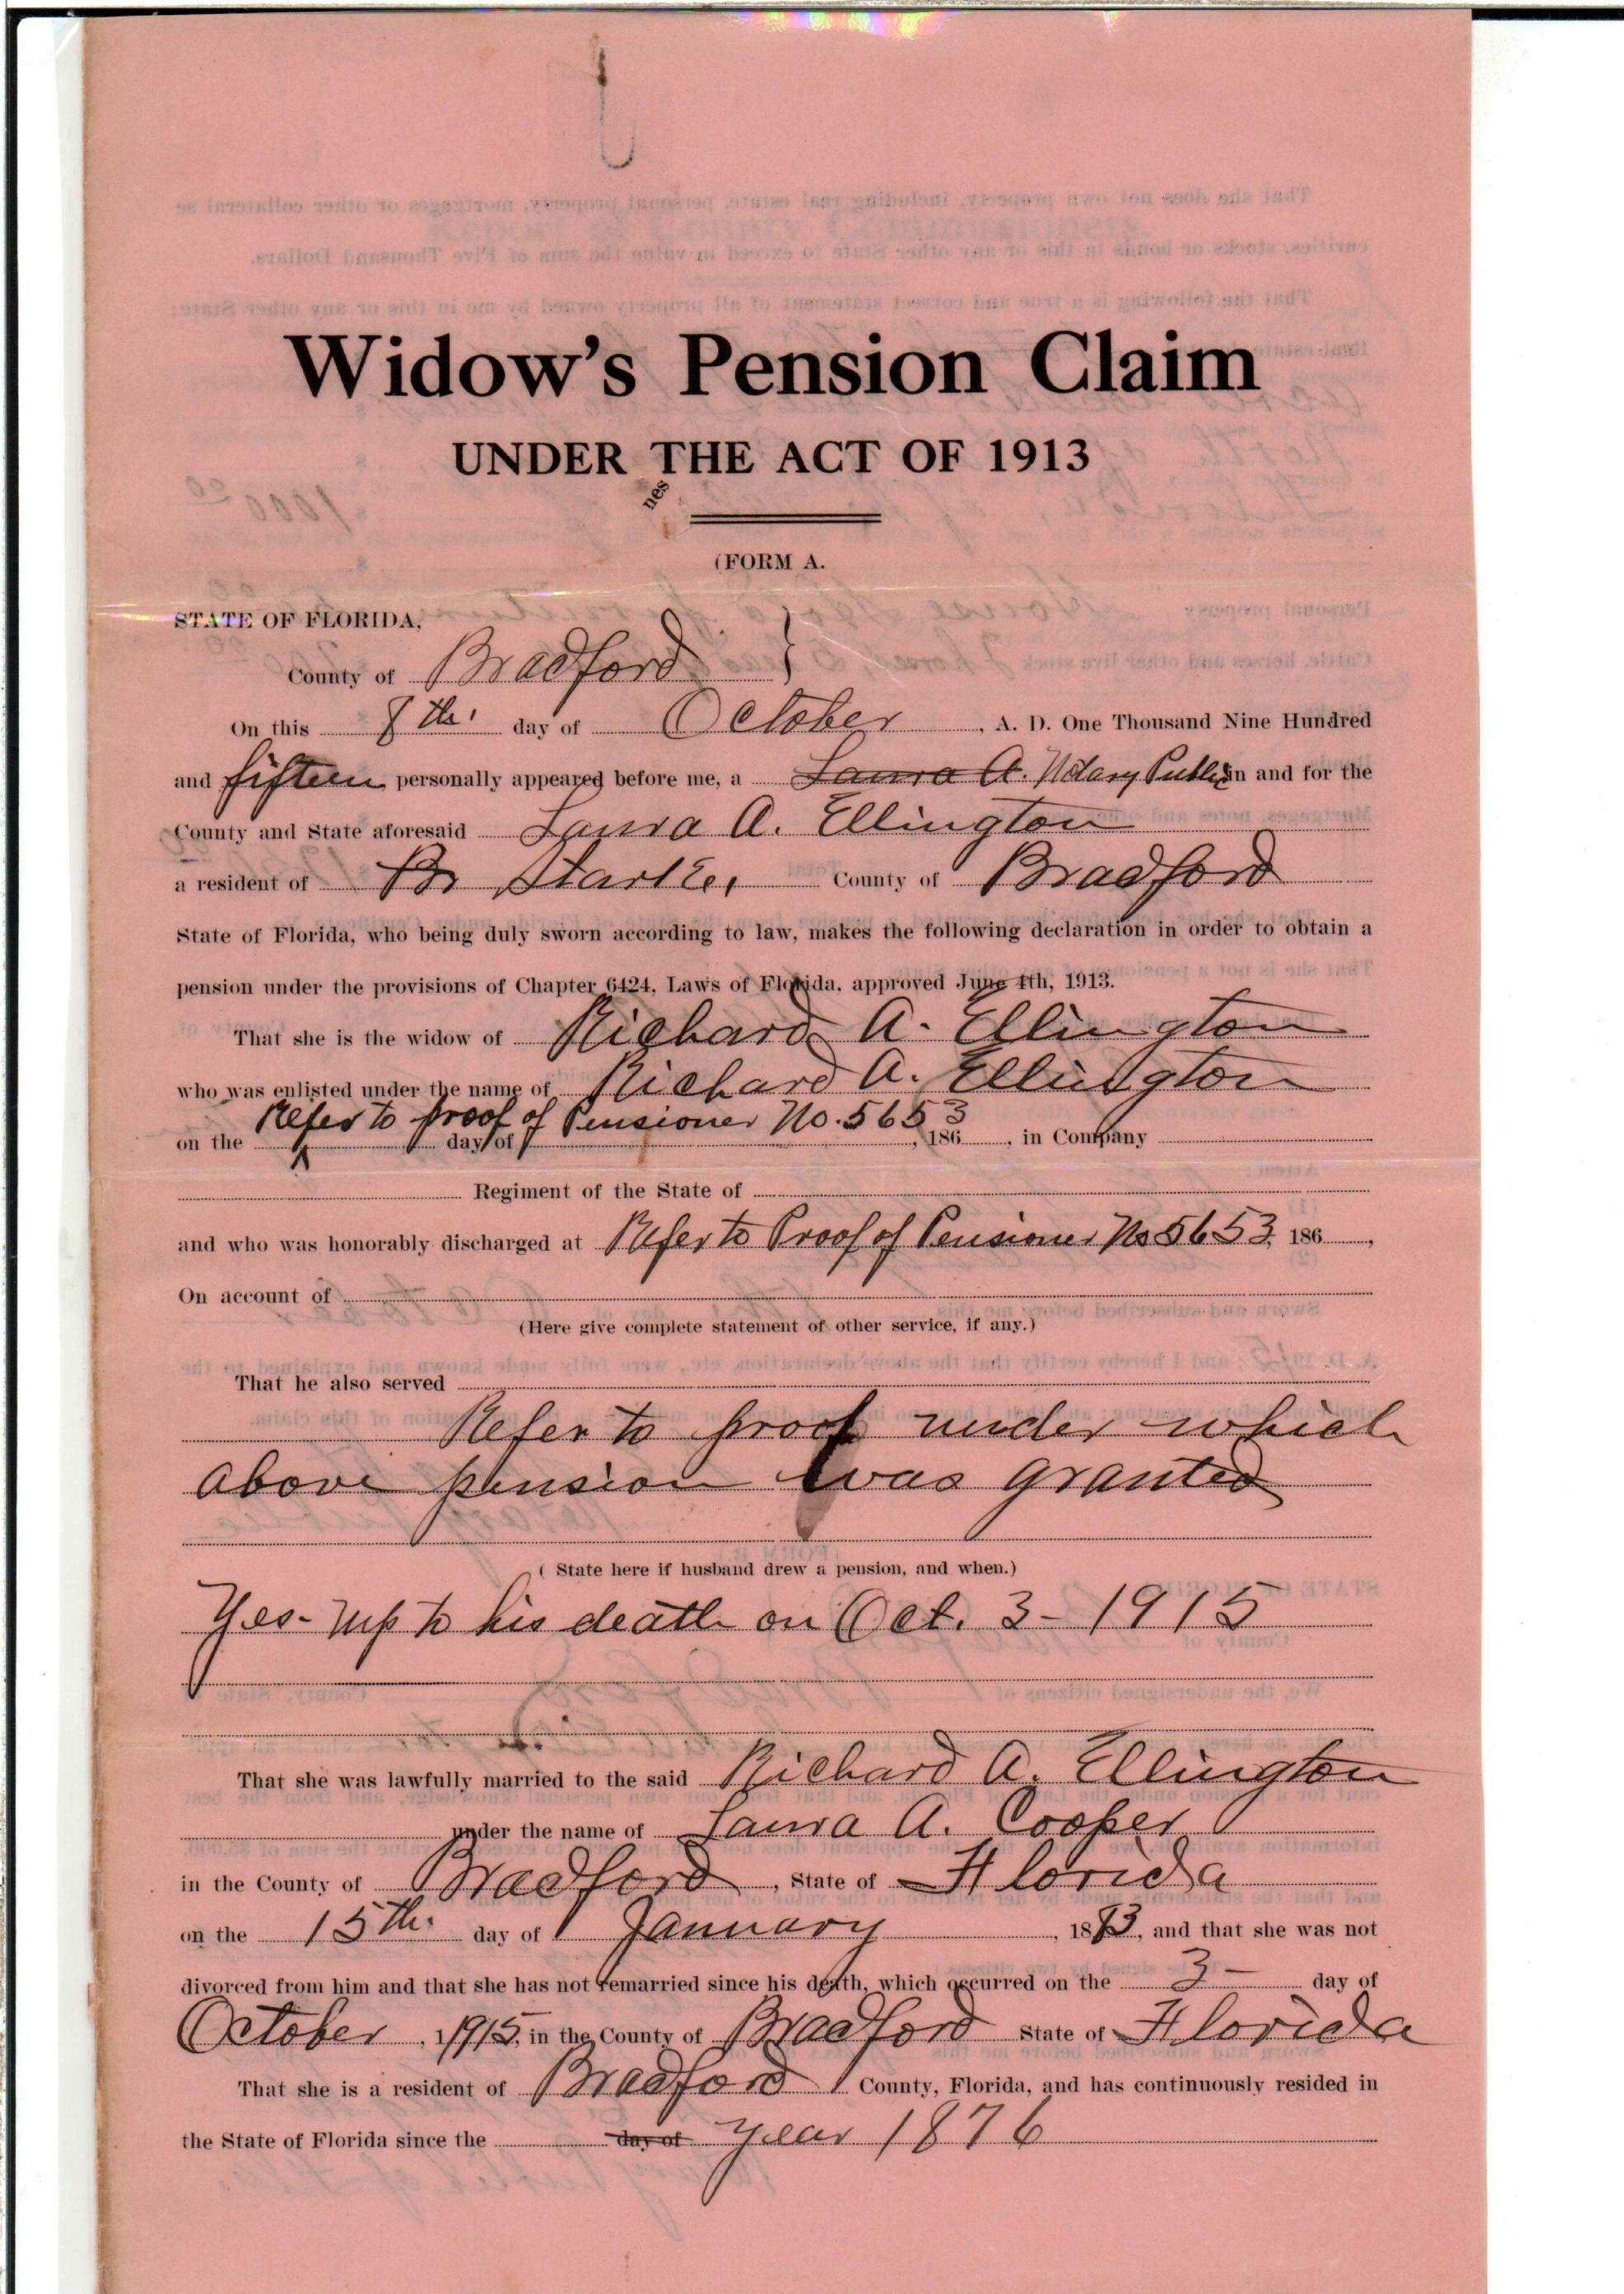 Widow's Pension Claim
UNDER THE ACT OF 1913
nes
(FORM A.
STATE OF FLORIDA,
County of Bradford }
On this 8th. day of October, A. D. One Thousand Nine Hundred
and fifteen personally appeared before me, a Laura A. Notary Public in and for the
County and State aforesaid Laura A. Ellington
a resident of Br Starke, County of Bradford
State of Florida, who being duly sworn according to law, makes the following declaration in order to obtain a
pension under the provisions of Chapter 6424, Laws of Florida, approved June 4th, 1913.
That she is the widow of Richard A. Ellington
who was enlisted under the name of Richard A. Ellington
Refer to proof of Pensioner No. 5653
on the day of , 186 , in Company
Regiment of the State of
and who was honorably discharged at Refer to Proof of Pensioner No 5653, 186 ,
On account of
(Here give complete statement of other service, if any.)
That he also served
Refer to proof under which
above pension was granted
( State here if husband drew a pension, and when.)
Yes - up to his death on Oct. 3 - 1915
That she was lawfully married to the said Richard A. Ellington
under the name of Laura A. Cooper
in the County of Bradford, State of Florida
on the 15th. day of January, 18 3, and that she was not
divorced from him and that she has not remarried since his death, which occurred on the 3 - day of
October, 1915, in the County of Bradford State of Florida
That she is a resident of Bradford County, Florida, and has continuously resided in
the State of Florida since the day of year 1876